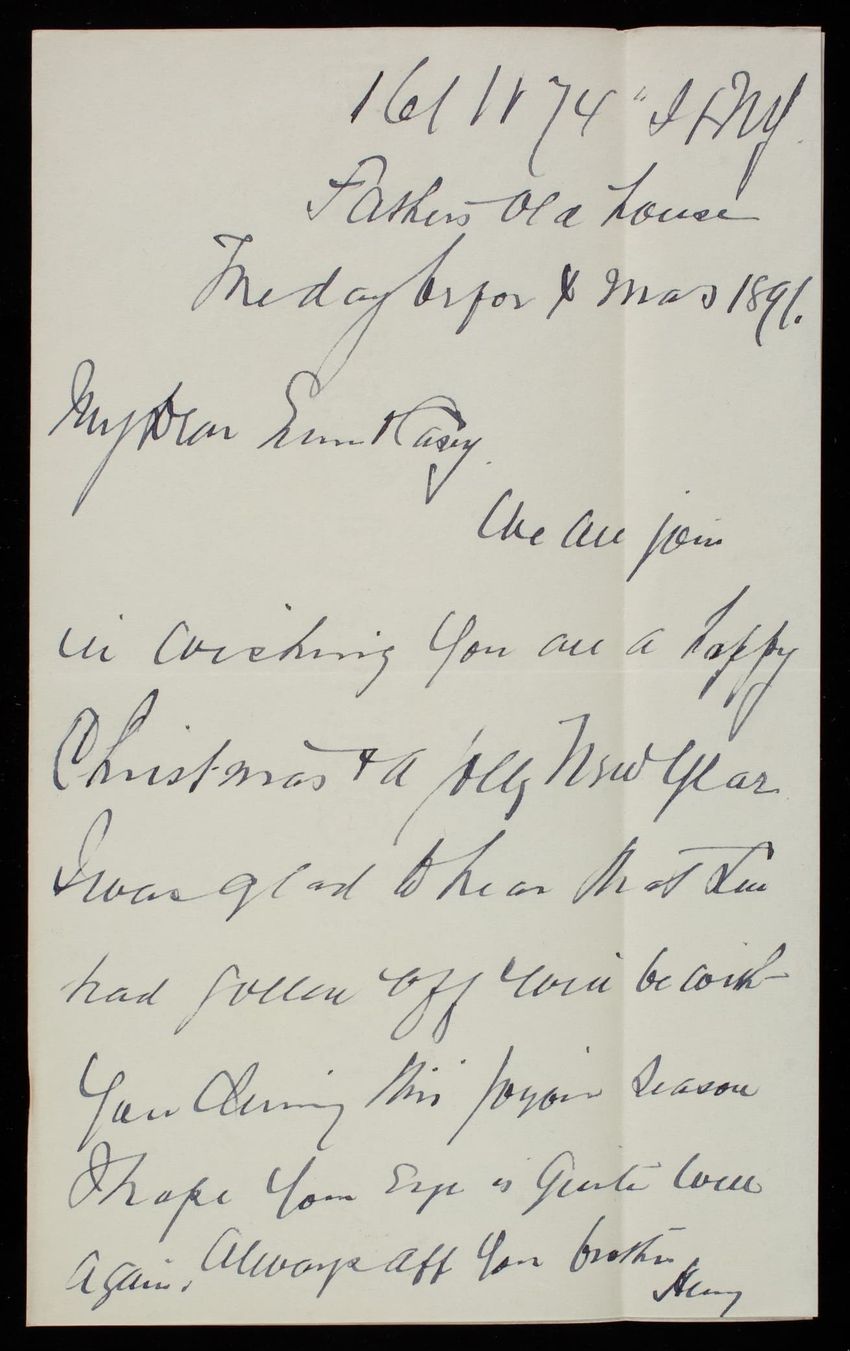 161 W 74" St NY.
Fathers Old house
The day befor X mas 1891.
My Dear Emm & Casey.
We all join
in wishing you all a happy
Christmas & a jolly New Year
I was glad to hear that
had gotten off & will be with
you during this joyous season
I hope your Eye is Quite well
Again. Always aff your brother
Henry